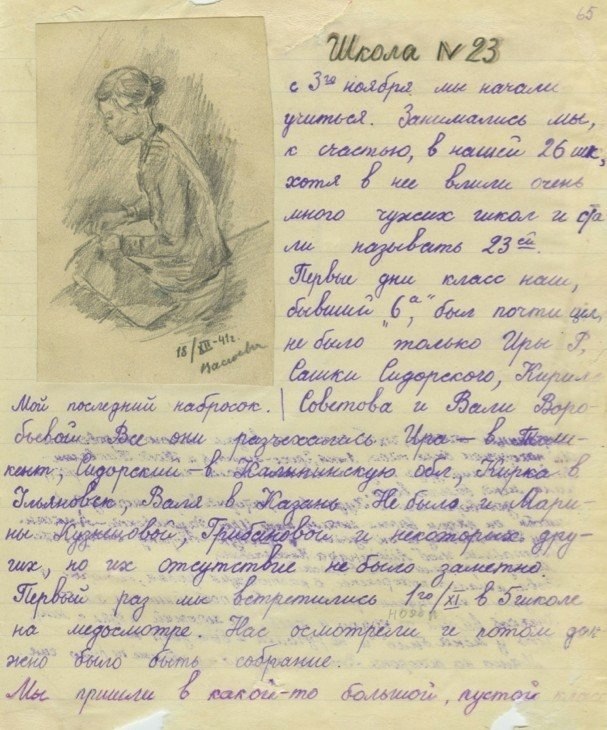 65
Школа № 23
с 3го ноября мы начали
учиться. Занимались мы,
к счастью, в нашей 26 шк,
хотя в нее влили очень
много чужих школ и ста
ли называть 23ей.
Первые дни класс наш,
бывший "6а", был почти цел,
не было только Иры Р,
Сашки Сидорского, Кирилл
18/XII-41г
Мой последний набросок. | Советова и Вали Воро-
бьевой. Все они разъехались Ира – в Таш-
кент, Сидорский – в Калининскую обл, Кирка в
Ульяновск Валя в Казань Не было и Мари-
ны Кузнецовой, Грибановой и некоторых дру-
гих, но их отсутствие не было заметно
Первый раз мы встретились 1го/XI в 5 школе
на медосмотре. Нас осмотрели и потом дол
жно было быть собрание.
Мы пришли в какой-то большой, пустой класс